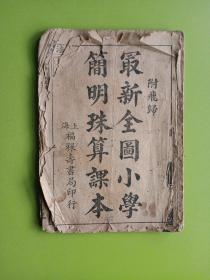 附飛歸
最新全圖小學
簡明珠算課本
上海福祿壽書局印行